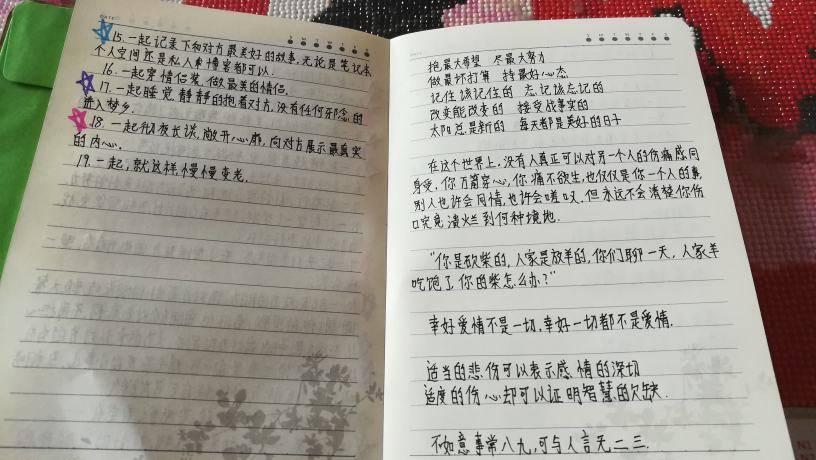 DATE
15.一起记录下和对方最美好的故事,无论是笔记本
个人空间还是私人博客都可以.
16.一起穿情侣装,做最美的情侣.
17.一起睡觉,静静的抱着对方,没有任何邪念的
进入梦乡.
18.一起彻夜长谈,敞开心扉,向对方展示最真实
的内心.
19.一起,就这样,慢慢变老.
抱最大希望 尽最大努力
做最坏打算 持最好心态
记住该记住的 忘记该忘记的
改变能改变的 接受成事实的
太阳总是新的 每天都是美好的日子
在这个世界上,没有人真正可以对另一个人的伤痛感同
身受,你万箭穿心,你痛不欲生,也仅仅是你一个人的事,
别人也许会同情,也许会嗟叹,但永远不会清楚你伤
口究竟溃烂到何种境地.
“你是砍柴的,人家是放羊的,你们聊一天,人家羊
吃饱了,你的柴怎么办?”
幸好爱情不是一切,幸好一切都不是爱情.
适当的悲伤可以表示感情的深切
适度的伤心却可以证明智慧的欠缺.
不如意事常八九,可与人言无二三.